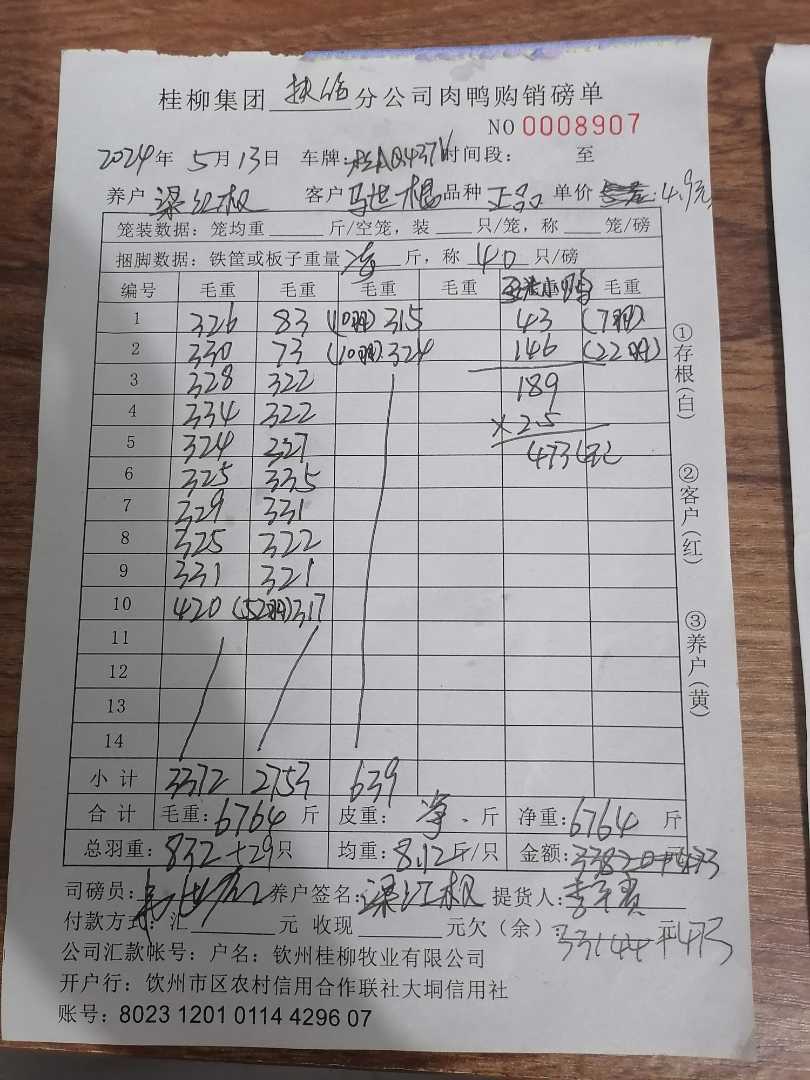 桂柳集团 分公司肉鸭购销磅单
NO 0008907
2024年 5月13日 车牌: 时间段: 至
养户 梁江权 客户 马世 品种 正品 单价 4.9元
笼装数据: 笼均重 斤/空笼, 装 只/笼, 称 笼/磅
捆脚数据: 铁筐或板子重量 斤, 称 40 只/磅
编号 毛重 毛重 毛重 毛重 毛重
1 326 83 (10羽) 315 43 (7羽)
2 330 73 (10羽) 324 146 (22羽)
3 328 322 189
4 334 322 ×2.5
5 324 327 473元
6 325 335
7 329 331
8 325 322
9 331 321
10 420 (52羽) 317
11
12
13
14
小计 3372 2753 639
合计 毛重: 6764 斤 皮重: 净 斤 净重: 6764 斤
总羽重: 832+29只 均重: 8.12斤/只 金额:
司磅员: 养户签名: 梁江权 提货人:
付款方式: 汇 元 收现 元欠(余): 33144+473
公司汇款帐号: 户名: 钦州桂柳牧业有限公司
开户行: 钦州市区农村信用合作联社大垌信用社
账号: 8023 1201 0114 4296 07
①存根(白)
②客户(红)
③养户(黄)